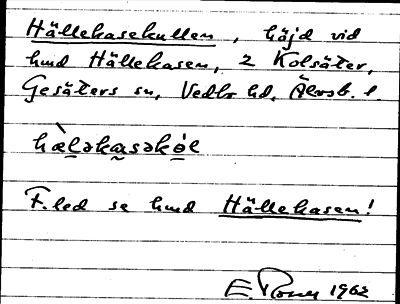 Hällekasekullen, höjd vid
hmd Hällekasen, 2 Kolsäter,
Gesäters sn, Vedbo hd, Älvsb. l.
hæ̀ləkasəköl
F.led se hmd Hällekasen!
E. 1962